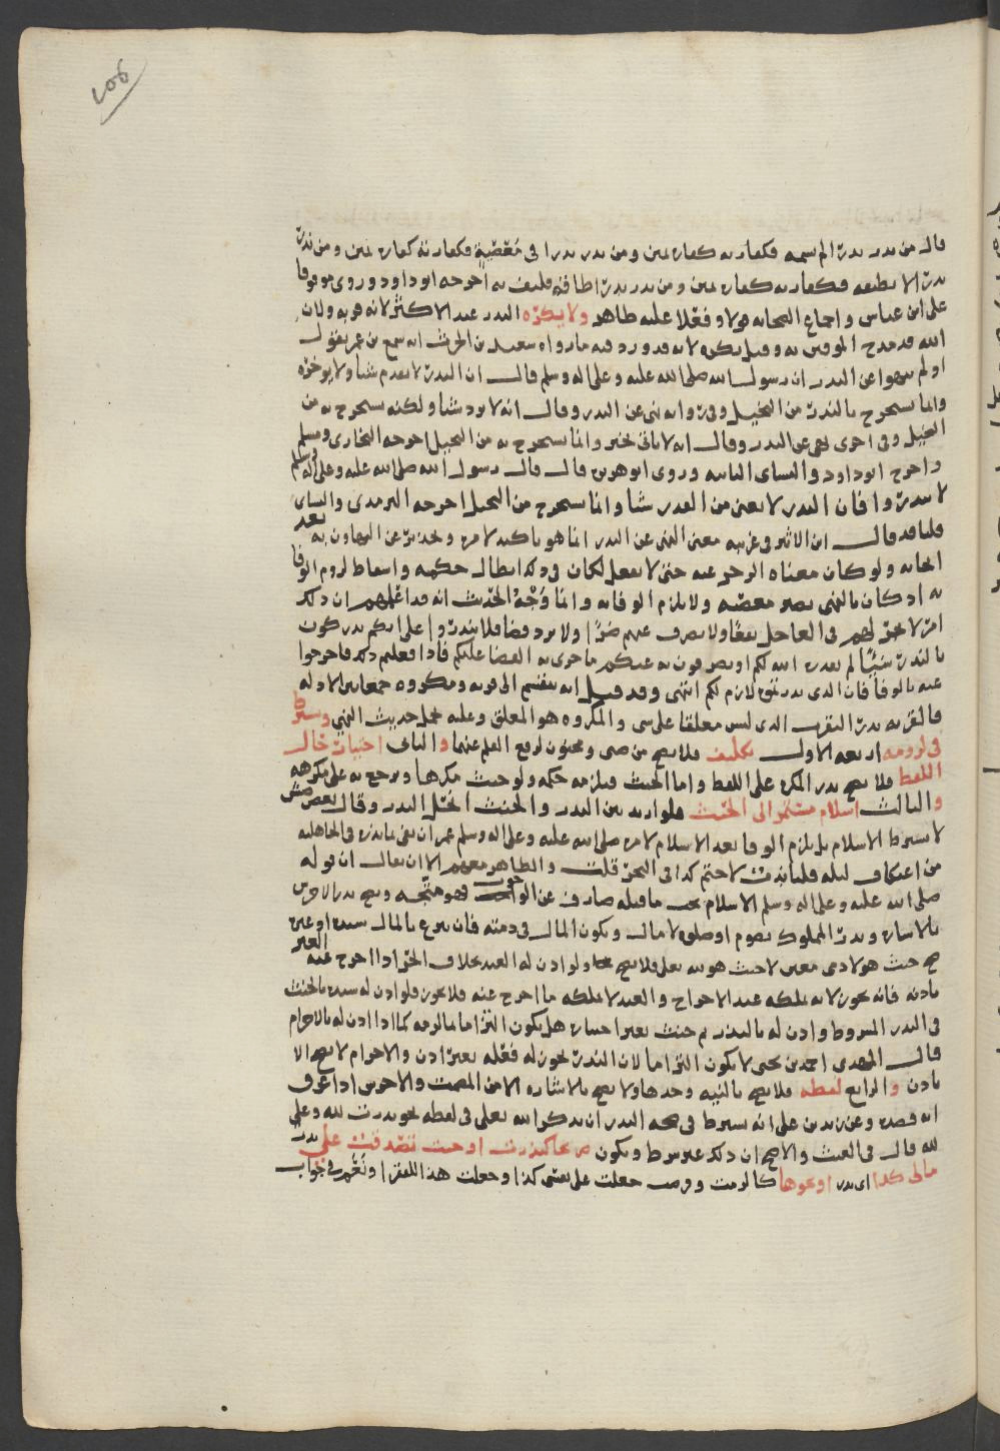 قال من نذر نذرا لم يسمه فكفارته كفارة يمين ومن نذر نذرا في معصية فكفارته كفارة يمين ومن نذر
نذرا لا يطيقه فكفارته كفارة يمين ومن نذر نذرا اطاقه فليف به اخرجه ابو داود وروي موقوفا
على ابن عباس واجماع الصحابة قولا وفعلا عليه ظاهر ولا يكره النذر عند الاكثر لانه قربة ولان
الله قد مدح الموفين به وقيل يكره لانه قد ورد فيه ما رواه سعيد بن الحرث انه سمع بن عمر يقول
اولم ينهوا عن النذر ان رسول الله صلى الله عليه وعلى اله وسلم قال ان النذر لا يقدم شيا ولا يوخره
وانما يستخرج بالنذر من البخيل وفي رواية نهى عن النذر وقال انه لا يرد شيا ولكنه يستخرج به من
البخيل وفي اخرى نهى عن النذر وقال انه لا ياتي بخير وانما يستخرج به من البخيل اخرجه البخاري ومسلم
واخرج ابو داود والنساي الثانية وروى ابو هريرة قال قال رسول الله صلى الله عليه وعلى اله وسلم
لا تنذروا فان النذر لا يغني من القدر شيا وانما يستخرج من البخيل اخرجه الترمذي والنساي
قلنا قد قال ابن الاثير في غريبه معنى النهي عن النذر انما هو تاكيد لامره وتحذير عن التهاون به بعد
ايجابه ولو كان معناه الزجر عنه حتى لا يفعل لكان في ذلك ابطال حكمه واسقاط لزوم الوفا
به اذ كان بالنهي يصير معصية ولا يلزم الوفا به وانما وجه الحديث انه قد اعلمهم ان ذلك
امر لا يجر لهم في العاجل نفعا ولا يصرف عنهم ضرا ولا يرد قضا فلا تنذروا على انكم تدركون
بالنذر شيئا لم يقدره الله لكم او تصرفون به عنكم ما جرى به القضا عليكم فاذا فعلتم ذلك فاخرجوا
عنه بالوفا فان الذي نذرتموه لازم لكم انتهى وقد قيل انه ينقسم الى قربة ومكروه جمعا بين الادلة
فالقربة نذر التقرب الذي ليس معلقا على شي والمكروه هو المعلق وعليه يحمل حديث النهي وشرط
في لزومه اربعة الاول تكليف فلا يصح من صبي ومجنون لرفع القلم عنهما والثاني اختيار حال
اللفظ فلا يصح نذر المكره على اللفظ واما الحنث فيلزمه حكمه ولو حنث مكرها ويرجع به على مكرهه
والثالث اسلام مستمر الى الحنث فلو ارتد بين النذر والحنث انحل النذر وقال بعض
لا يشترط الاسلام بل يلزم الوفا بعد الاسلام لامره صلى الله عليه وعلى اله وسلم عمر ان يفي بما نذره في الجاهلية
من اعتكاف ليلة قلنا ندب لا حتم كذا في البحر قلت والظاهر معهم الا ان يقال ان قوله
صلى الله عليه وعلى اله وسلم الاسلام يجب ما قبله صارف عن الوجوب فهو متجه ويصح نذر الاخرس
بالاشارة ونذر المملوك بصوم او صلوة لا مال ويكون المال في ذمته فان تبرع بالمال سيده او غيره
صح حيث هو لادمي معين لا حيث هو لله تعالى فلا يصح ولو اذن له العبد بخلاف الحر اذا اخرج عنه الغير
باذنه فانه يجوز لانه يملكه عند الاخراج والعبد لا يملكه ما اخرج عنه فلا يجوز فلو اذن له سيده بالحنث
في النذر المشروط واذن له بالنذر ثم حنث بغير اختياره هل يكون التزاما بما لزمه كما اذا اذن له بالاحرام
قال المهدي احمد بن يحيى لا يكون التزاما لان النذر يجوز له فعله بغير اذن والاحرام لا يصح الا
باذن والرابع لفظه فلا يصح بالنية وحدها ولا يصح بالاشارة الا من المصمت والاخرس اذا عرف
انه قصده وعن زيد بن علي انه يشترط في صحة النذر ان يذكر الله تعالى في لفظه نحو نذرت لله وعلي
لله قال في الغيث والاصح ان ذلك غير شرط ويكون صريحا كنذرت اوجبت تصدقت علي نذر
مالي كذا اي نذر او نحوها كالزمت وفرضت جعلت على نفسي كذا وجعلت هذا للفقرا ونعم في جواب